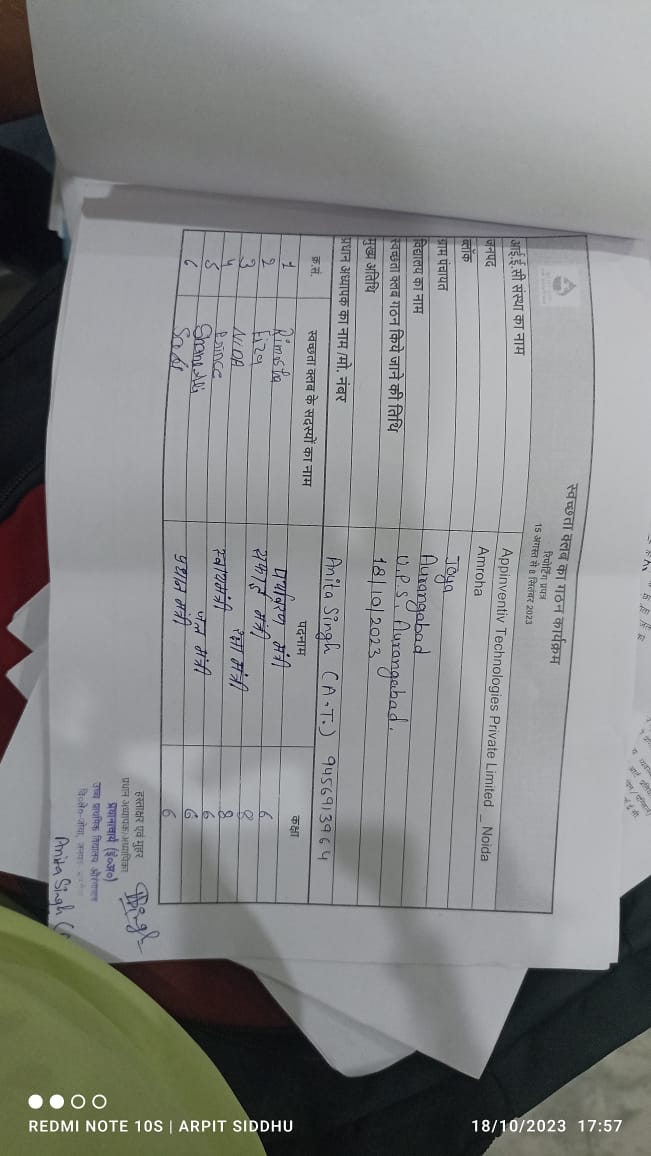 स्वच्छता क्लब का गठन कार्यक्रम
रिपोर्टिंग प्रपत्र
15 अगस्त से 8 सितंबर 2023
आई.ई.सी संस्था का नाम Appinventiv Technologies Private Limited _ Noida
जनपद Amroha
ब्लॉक Joya
ग्राम पंचायत Aurangabad
विद्यालय का नाम U.P.S. Aurangabad.
स्वच्छता क्लब गठन किये जाने की तिथि 18/10/2023
मुख्य अतिथि
प्रधान अध्यापक का नाम /मो. नंबर Anita Singh (A.T.) 9456913964
क्र.सं. स्वच्छता क्लब के सदस्यों का नाम पदनाम कक्षा
1 पर्यावरण मंत्री 6
2 Fiza सफाई मंत्री 8
3 NIDA मंत्री 8
4 Prince स्वास्थ्यमंत्री 6
5 जल मंत्री 6
6 प्रधान मंत्री 6
हस्ताक्षर एवं मुहर
प्रधान अध्यापक/अध्यापिका
प्रधानाचार्य (इं०अ०)
उच्च प्राथमिक विद्यालय औरंगाबाद
वि०क्षे०-जोया, जनपद
Anita Singh
REDMI NOTE 10S | ARPIT SIDDHU
18/10/2023 17:57